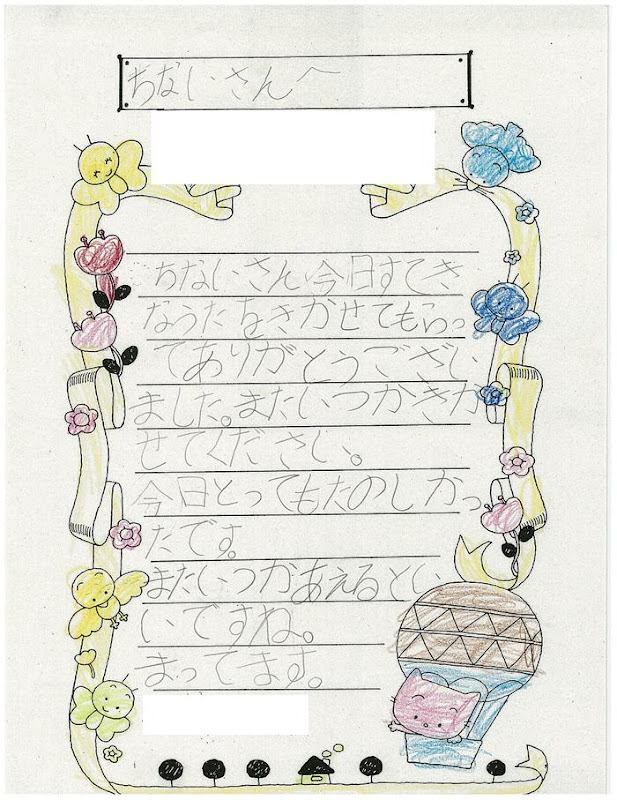 ちないさんへ
ちないさん今日すてき
なうたをきかせてもらっ
てありがとうござい
ました。またいつかきか
せてください。
今日とってもたのしかっ
たです。
またいつかあえるとい
いですね。
まってます。